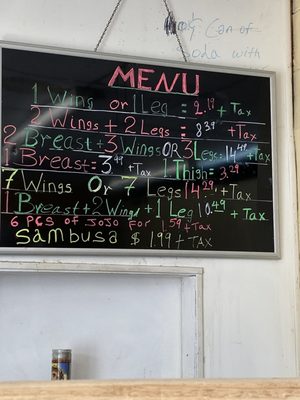 Can of
soda with
MENU
1 Wing or 1 Leg = 2.19 + Tax
2 Wings + 2 Legs = 8.39 + Tax
2 Breast + 3 Wings OR 3 Legs = 14.49 + Tax
1 Breast = 3.49 + Tax 1 Thigh = 3.29
7 Wings Or 7 Legs 14.29 + Tax
1 Breast + 2 Wings + 1 Leg 10.49 + Tax
6 PCS OF JOJO FOR 1.59 + Tax
Sambusa $ 1.99 + TAX